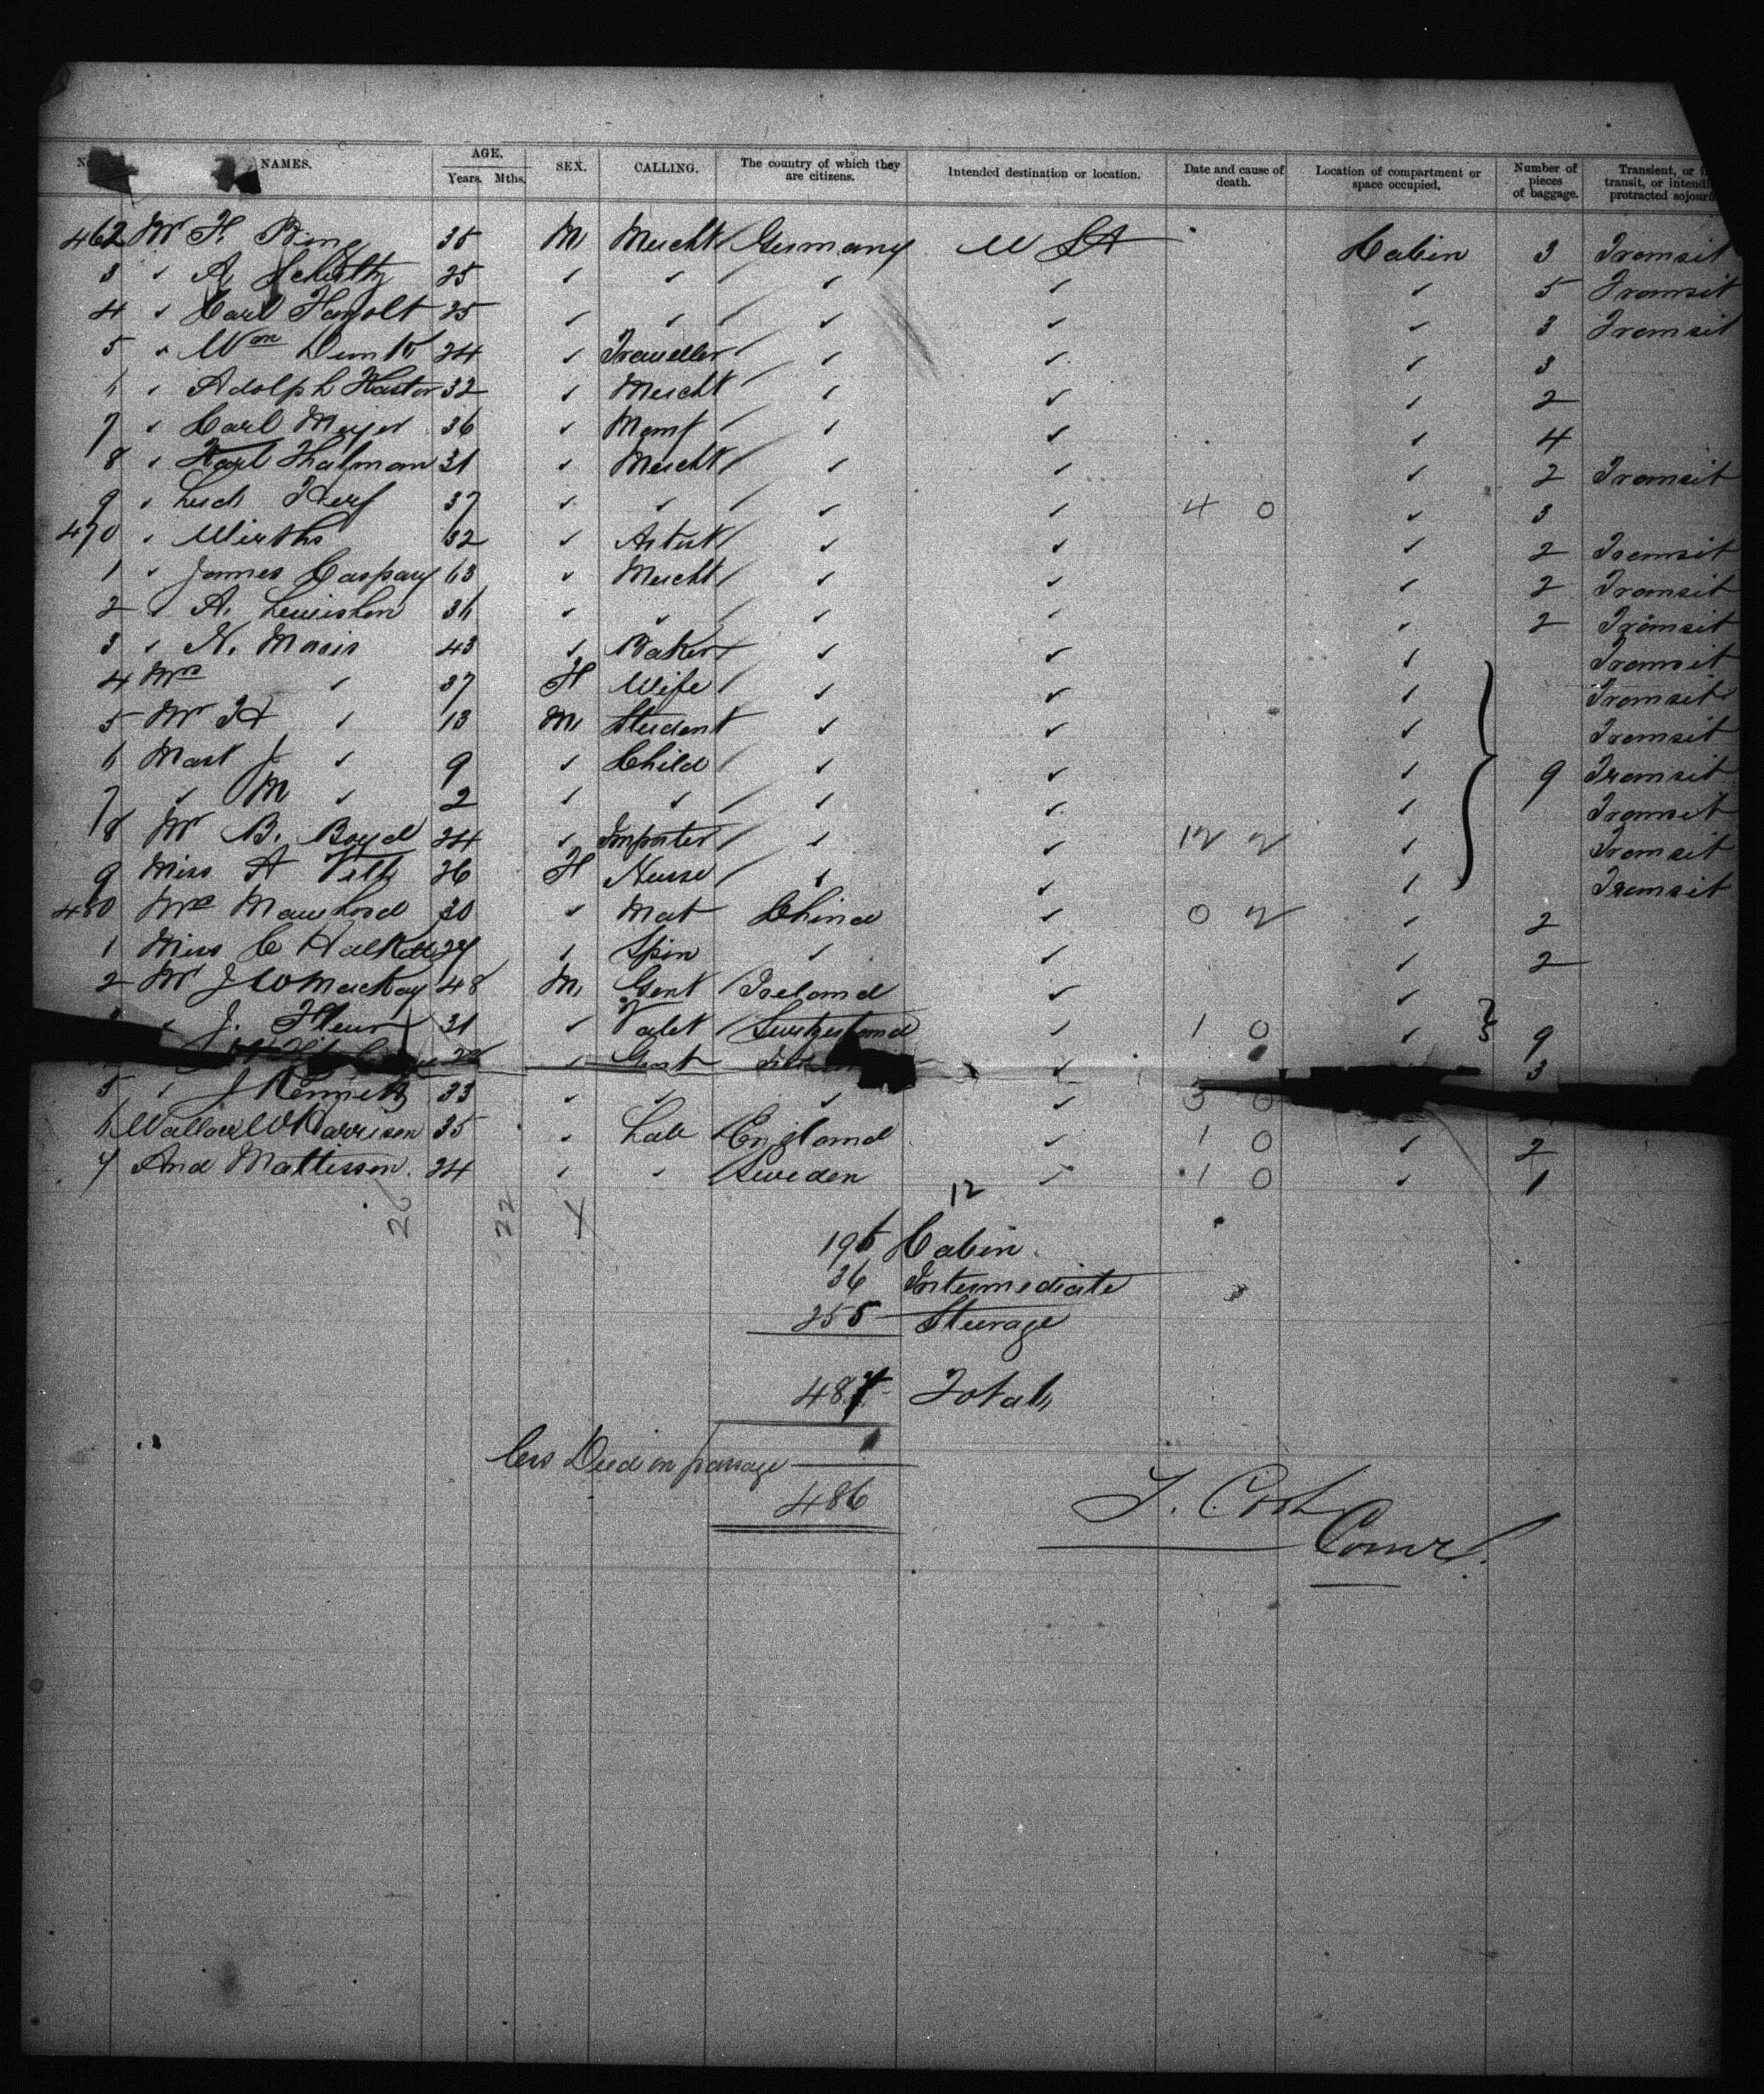 NAMES. AGE. SEX. CALLING. The country of which they are citizens. Intended destination or location. Date and cause of death. Location of compartment or space occupied. Number of pieces of baggage. Transient, or in transit, or intending protracted sojourn
Years. Mths.
462 Mr H. Bing 35 M Mercht Germany U S A Cabin 3 Transit
3 " A. Schultz 25 " " " " " 5 Transit
4 " Carl 25 " " " " " 3 Transit
5 " Wm 24 " Traveller " " " 3
6 " Adolph Kastor 32 " Mercht " " " 2
7 " Carl Meyer 36 " Manf " " " 4
8 " Karl Thalman 31 " Mercht " " " 2 Transit
9 " 37 " " " " 4 0 " 3
470 " Wirths 32 " Artist " " " 2 Transit
1 " James Caspary 63 " Mercht " " " 2 Transit
2 " A. Lewishon 36 " " " " " 2 Transit
3 " N. 43 " Baker " " " Transit
4 Mrs " 37 F Wife " " " Transit
5 Mr H " 13 M Student " " " Transit
6 Mast J " 9 " Child " " " 9 Transit
7 " M " 2 " " " " " Transit
8 Mr B. Boyd 24 " Importer " " 12 2 " Transit
9 Miss A Veth 26 F Nurse " " " Transit
480 Mrs 30 " Mat China " 0 2 " 2
1 Miss C " Spin " " " 2
2 Mr J W Mackay 48 M Gent Ireland " "
" J. 31 " Valet Switzerland " 1 0 " 9
" Gent " 3
5 " J Kennett 33 " " " " 3 0
6 Wallace W Harrison 35 " Lab England " 1 0 " 2
7 And Mattisson. 24 " " Sweden " 1 0 " 1
26 22 X 12
196 Cabin
36 Intermediate
255 Steerage
487 Total
less Died on passage 1
486
T. Cook
Comr.